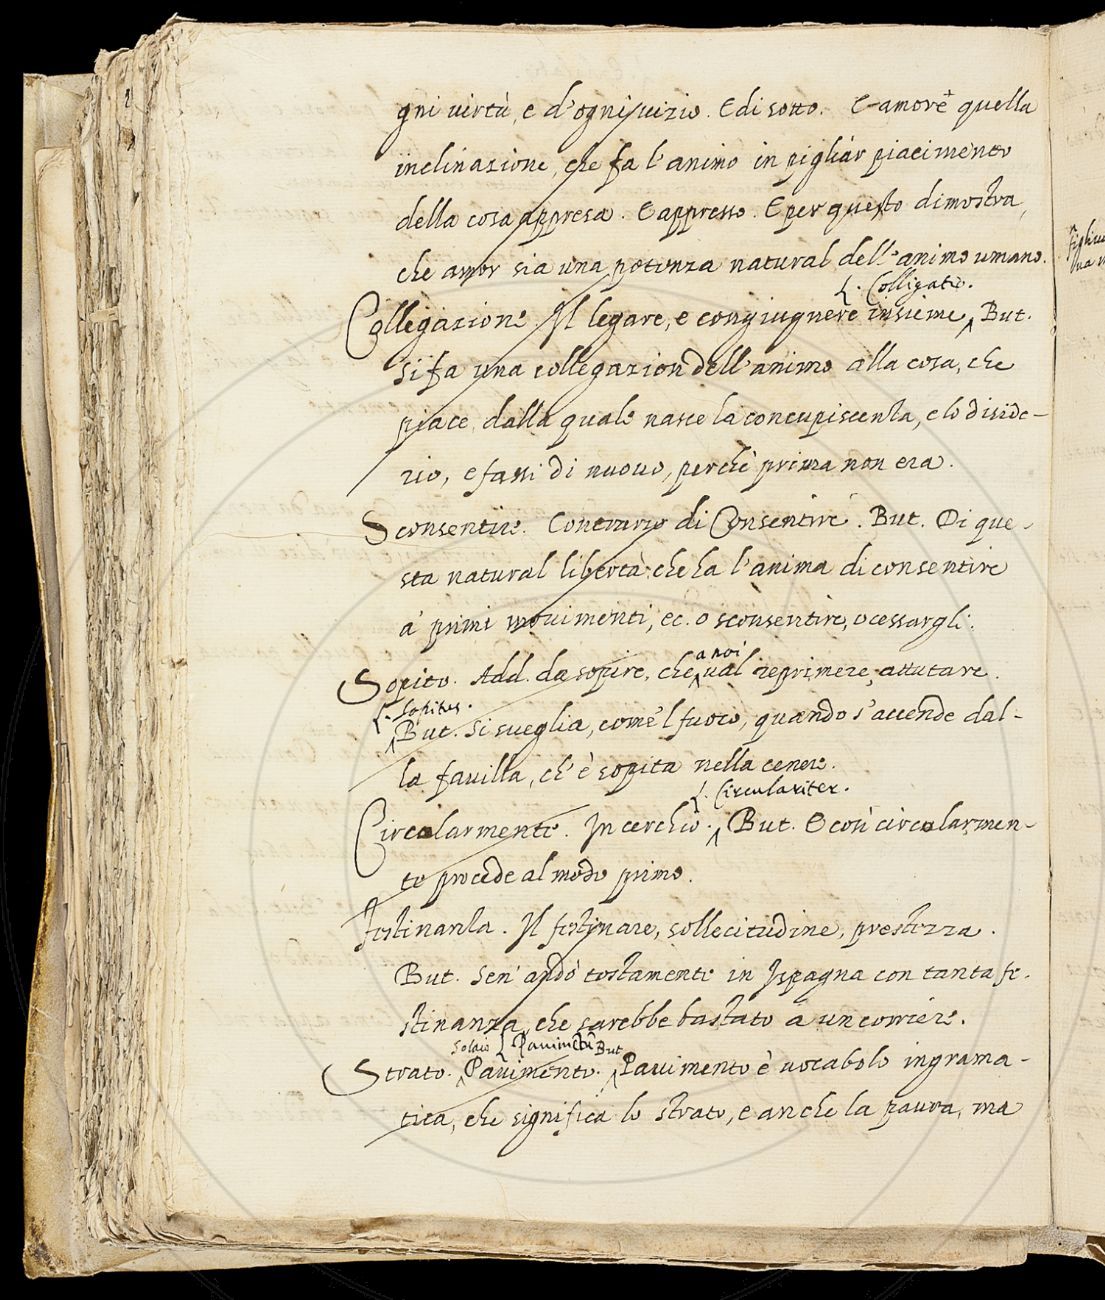 gni virtù, e d'ogni vizio. E di sotto. E amore è quella
inclinazione, che fa l'animo in pigliar piacimento
della cosa appresa. E appresso. E per questo dimostra,
che amor sia una potenza natural dell'animo umano.
L. Colligatio.
Collegazione Il legare, e congiugnere insieme, But.
Si fa una collegazion dell'animo alla cosa, che
piace, dalla quale nasce la concupiscenza, e lo diside-
rio, e fassi di nuovo, perchè prima non era.
Sconsentire. Contrario di Consentire. But. Di que-
sta natural libertà che ha l'anima di consentire
a' primi movimenti, ec. o sconsentire, o cessargli.
a noi
Sopito. Add. da sopire, che val reprimere, attutare.
L. sopitus.
But. Si sveglia, come 'l fuoco, quando s'accende dal-
la favilla, ch'è sopita nella cenere.
L. Circulariter.
Circolarmente. In cerchio. But. E così circolarmen-
te procede al modo primo.
Festinanza. Il festinare, sollecitudine, prestezza.
But. Sen' andò tostamente in Ispagna con tanta fe-
stinanza, che sarebbe bastato a un corriere.
Solaio L. Pavimentũ But
Strato. Pavimento. Pavimento è vocabolo in grama-
tica, che significa lo strato, e anche la paura, ma